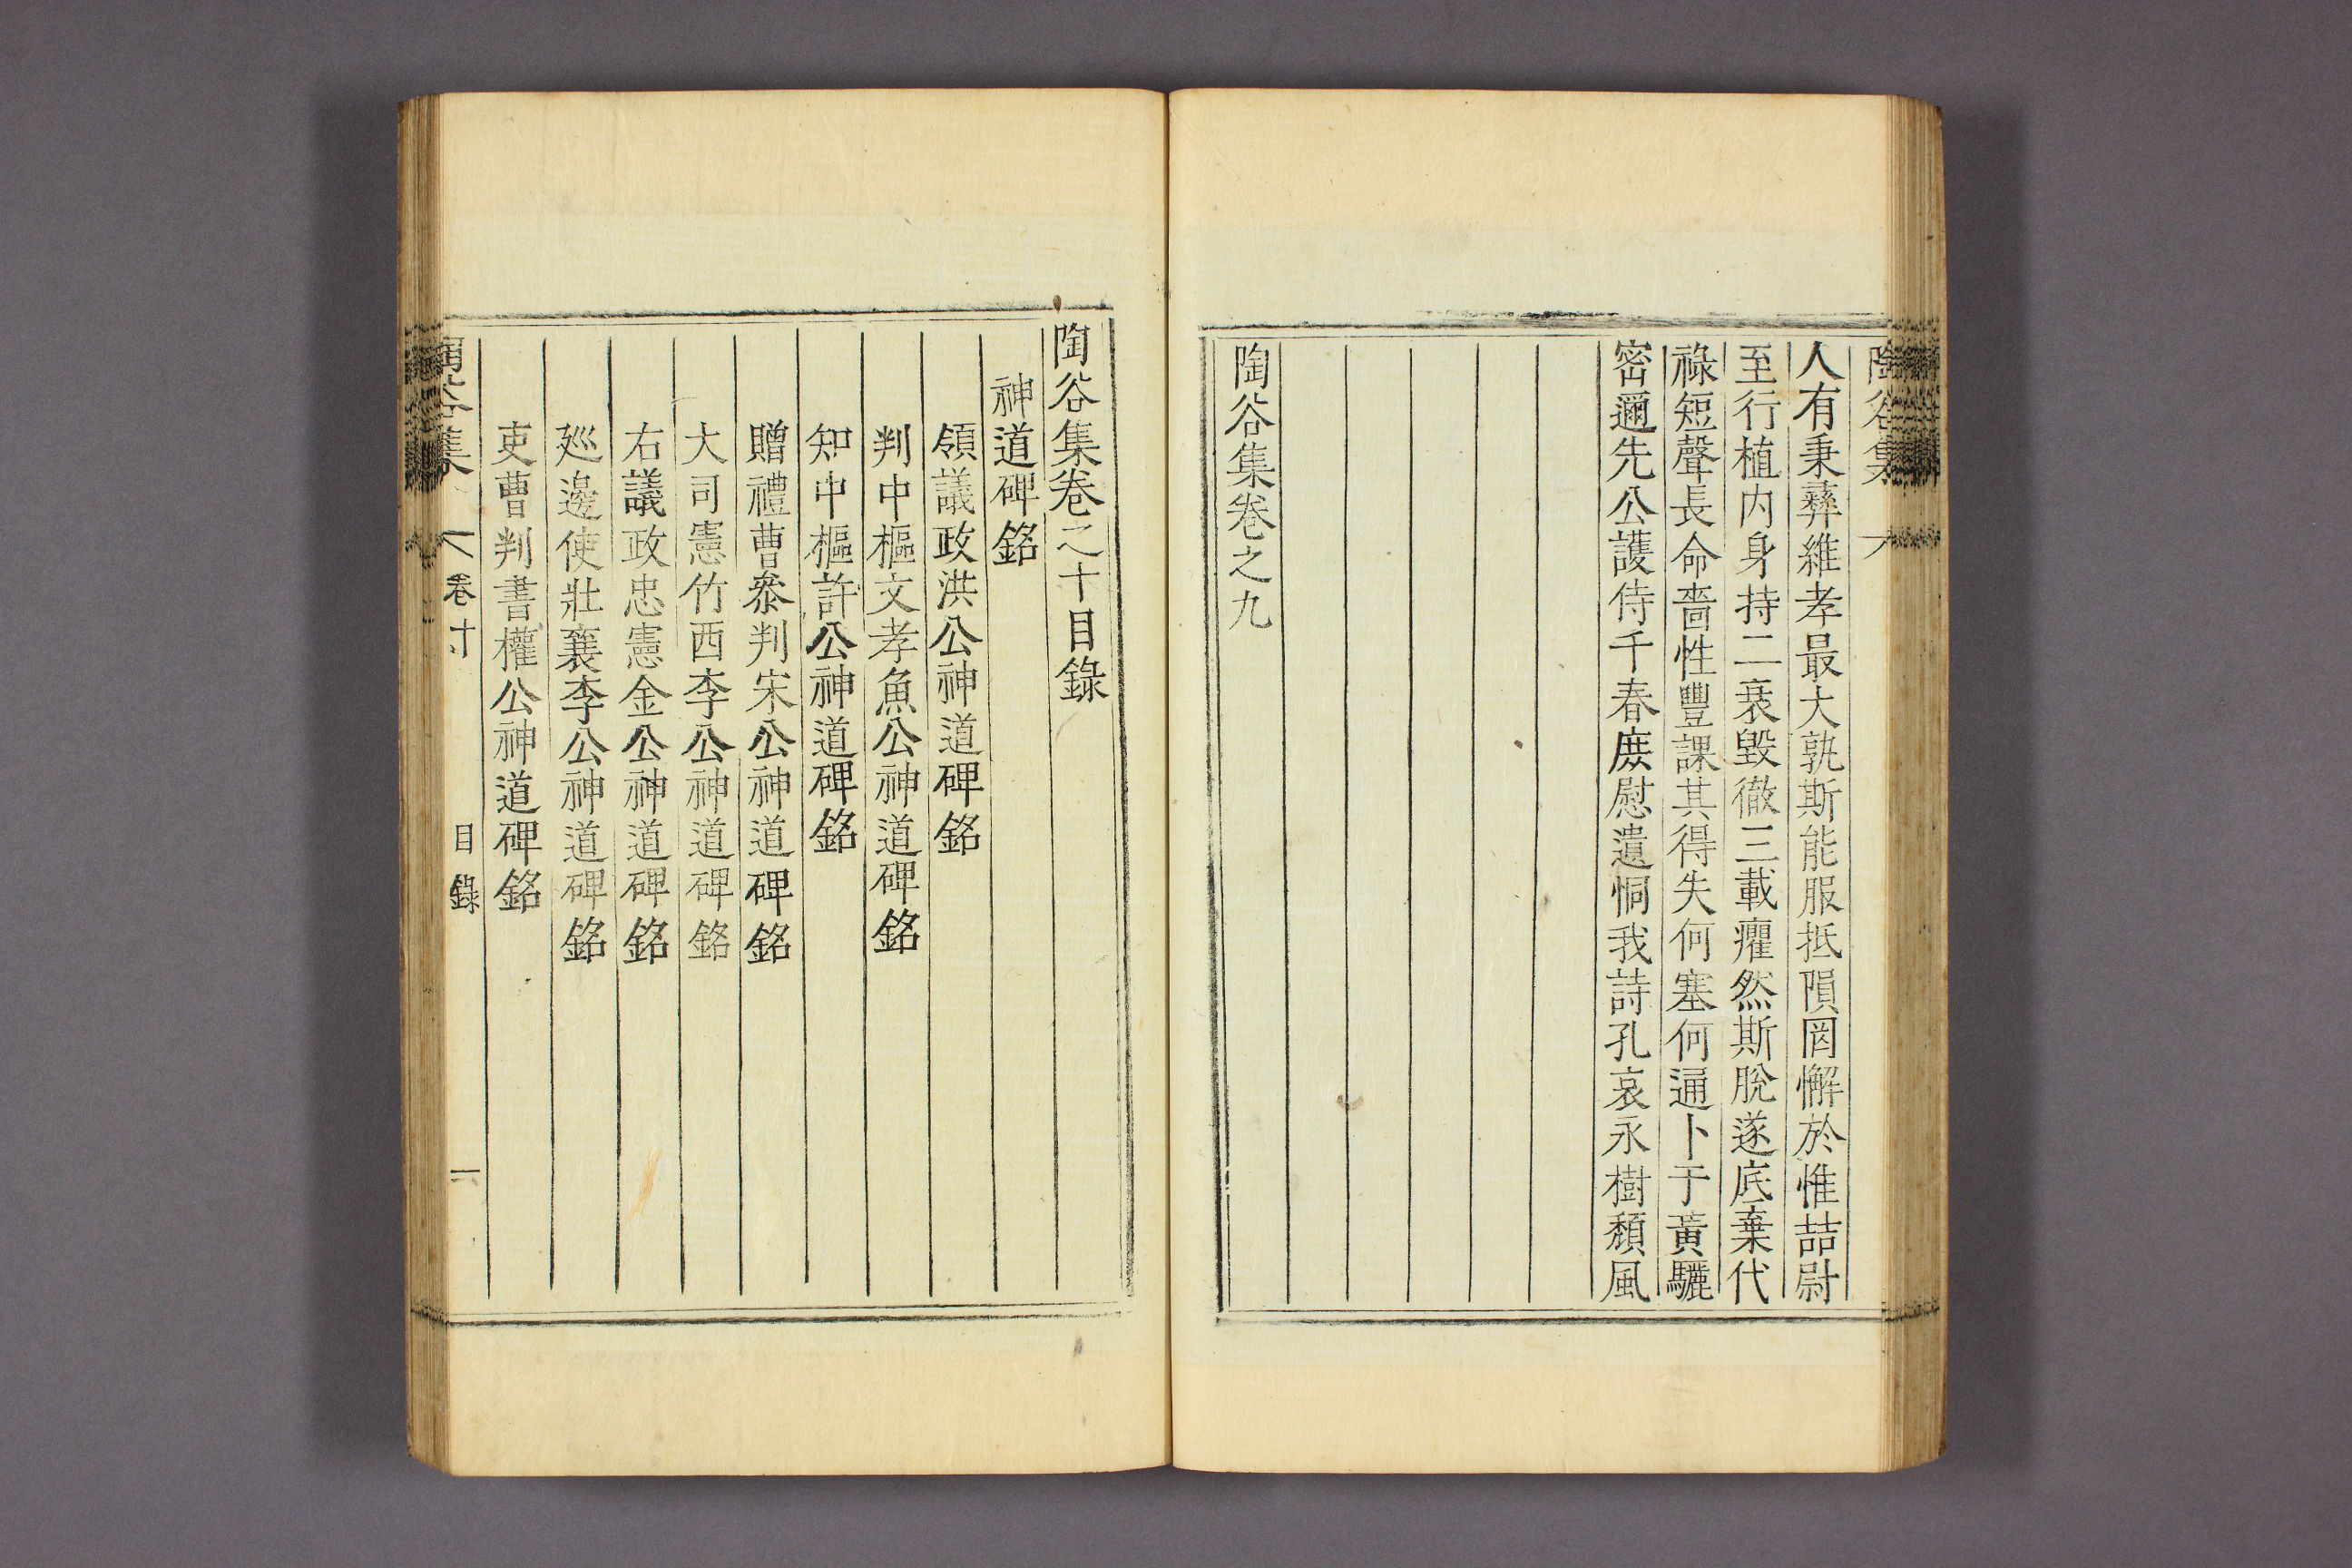 陶谷集
人有秉彝維孝最大孰斯能服抵隕罔懈於惟喆尉
至行植内身持二衰毀徹三載癯然斯脫遂底棄代
祿短聲長命嗇性豐課其得失何塞何通卜于黃驪
密邇先公護侍千春庶慰遺恫我詩孔哀永樹頹風
陶谷集卷之九
陶谷集卷之十目錄
神道碑銘
領議政洪公神道碑銘
判中樞文孝魚公神道碑銘
知中樞許公神道碑銘
贈禮曹叅判宋公神道碑銘
大司憲竹西李公神道碑銘
右議政忠憲金公神道碑銘
廵邊使壯襄李公神道碑銘
吏曹判書權公神道碑銘
陶谷集 卷十 目錄